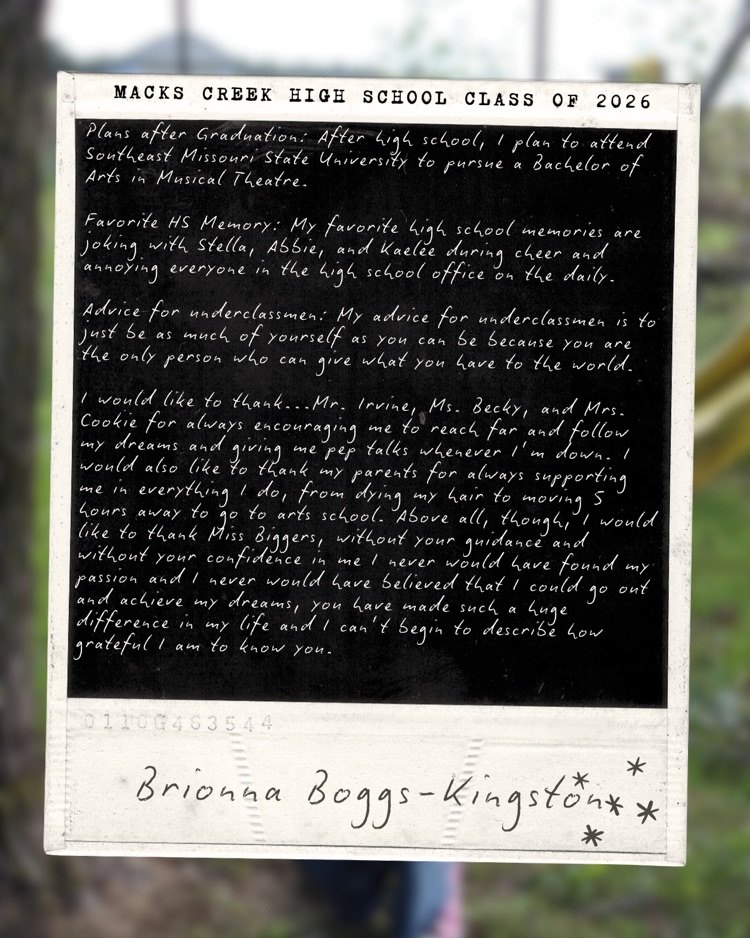 MACKS CREEK HIGH SCHOOL CLASS OF 2026
Plans after Graduation: After high school, I plan to attend
Southeast Missouri State University to pursue a Bachelor of
Arts in Musical Theatre.
Favorite HS Memory: My favorite high school memories are
joking with Stella, Abbie, and Kaelee during cheer and
annoying everyone in the high school office on the daily.
Advice for underclassmen: My advice for underclassmen is to
just be as much of yourself as you can be because you are
the only person who can give what you have to the world.
I would like to thank...Mr. Irvine, Ms. Becky, and Mrs.
Cookie for always encouraging me to reach far and follow
my dreams and giving me pep talks whenever I'm down. I
would also like to thank my parents for always supporting
me in everything I do, from dying my hair to moving 5
hours away to go to arts school. Above all, though, I would
like to thank Miss Biggers, without your guidance and
without your confidence in me I never would have found my
passion and I never would have believed that I could go out
and achieve my dreams, you have made such a huge
difference in my life and I can't begin to describe how
grateful I am to know you.
0110G463544
Brionna Boggs-Kingston